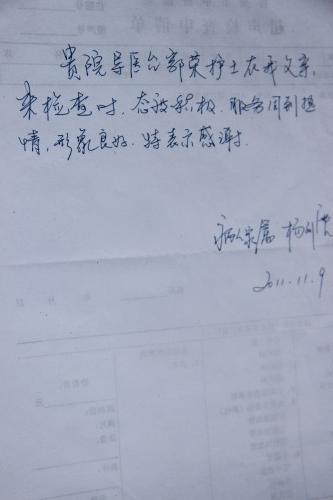 贵院导医台郭荣护士在我父亲
来检查时，态度积极．服务周到热
情，形象良好．特表示感谢．
病人家属 杨
2011.11.9